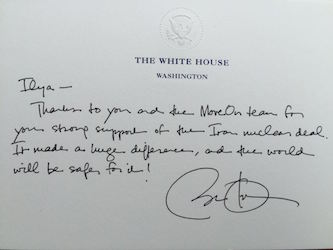 THE WHITE HOUSE
WASHINGTON
Ilya —
Thanks to you and the MoveOn team for
your strong support of the Iran nuclear deal.
It made a huge difference, and the world
will be safer for it!